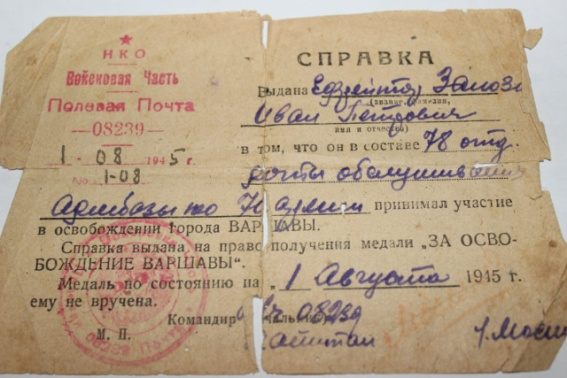 НКО
Войсковая Часть
Полевая Почта
—08239—
1 - 08 1945 г.
№ 1-08
СПРАВКА
Выдана Ефрейтор
(звание, фамилия,
Иван Петрович
имя и отчество)
в том, что он в составе 78 отд.
роты обслуживания
70 армии принимал участие
в освобождении города ВАРШАВЫ.
Справка выдана на право получения медали „ЗА ОСВО-
БОЖДЕНИЕ ВАРШАВЫ".
Медаль по состоянию на „1 Августа 1945 г.
ему не вручена.
Командир 08239
М. П. капитан